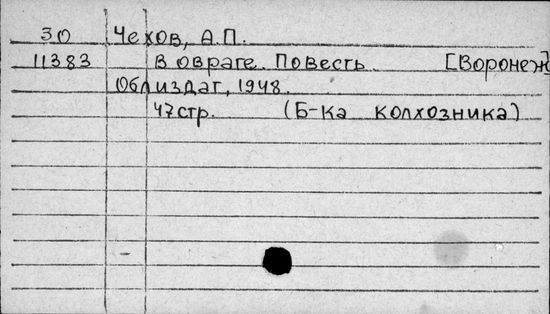 30 Чехов, А.П.
11383 В овраге. Повесть [Воронеж]
Облиздат, 1948.
47стр. (Б-ка колхозника)